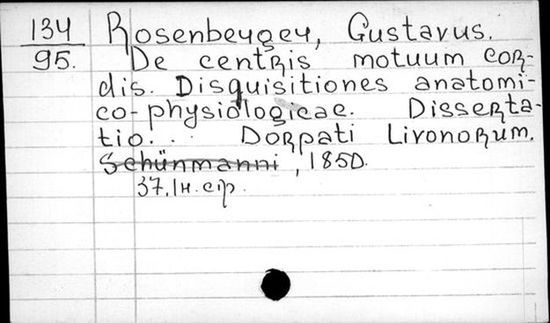 134 Rosenberger, Gustavus.
95. De centris motuum cor-
dis. Disquisitiones anatomi-
co-physiologicae. Disserta-
tio... Dorpati Livonorum.
Schünmanni, 1850.
37, Iн. стр.